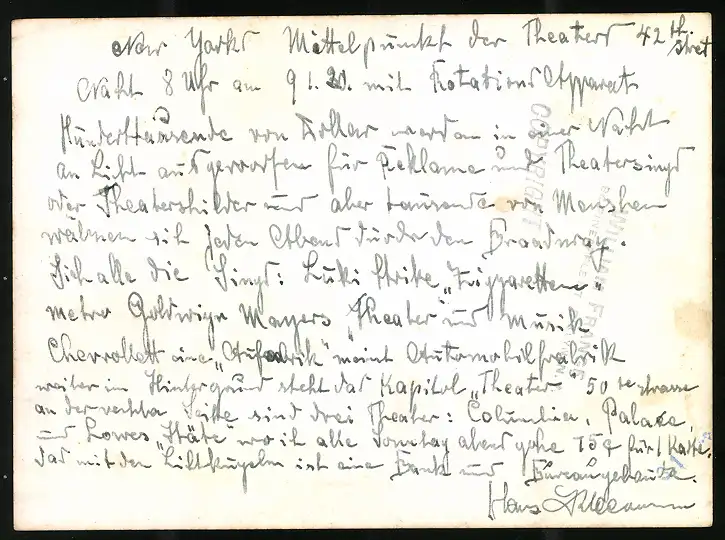 New Yorks Mittelpunkt der Theaters 42th Street
Naht 8 Uhr am 9 1. 20. mit Rotations Apparat
Hunderttausende von Dollar werden in einer Nacht
an Licht ausgeworfen für Reklame und Theatersings
oder Theatershilder und aber tausende von Menshen
wälmen sih jeden Abend durch den Broadway.
Sieh alle die Sings: Luki Strike „Zigyaretten"
metro Goldwign Mayers „Theater" und Musik
Chevrollett eine „Autofabrik" meint Automobilfabrik
weiter im Hintergrund steht das Kapitol „Theater 50te strasse
an der rechten Seite sind drei Theater: Columbia, Palace,
und Lowes „State" wo ih alle Sonntag abend gehe 75¢ für 1 Karte.
das mit den Lihtkugeln ist eine Bank und Bureaugebäude.
Hans
COPYRIGHT
WILLIAM FRANGE